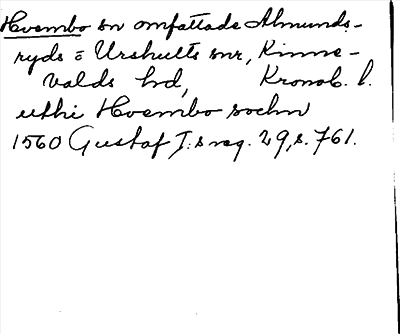 Hvembo sn omfattade Almunds-
ryds o Urshults snr, Kinne-
valds hd, Kronob. l.
uthi Hvembo sochn
1560 Gustaf I:s reg. 29, s. 761.